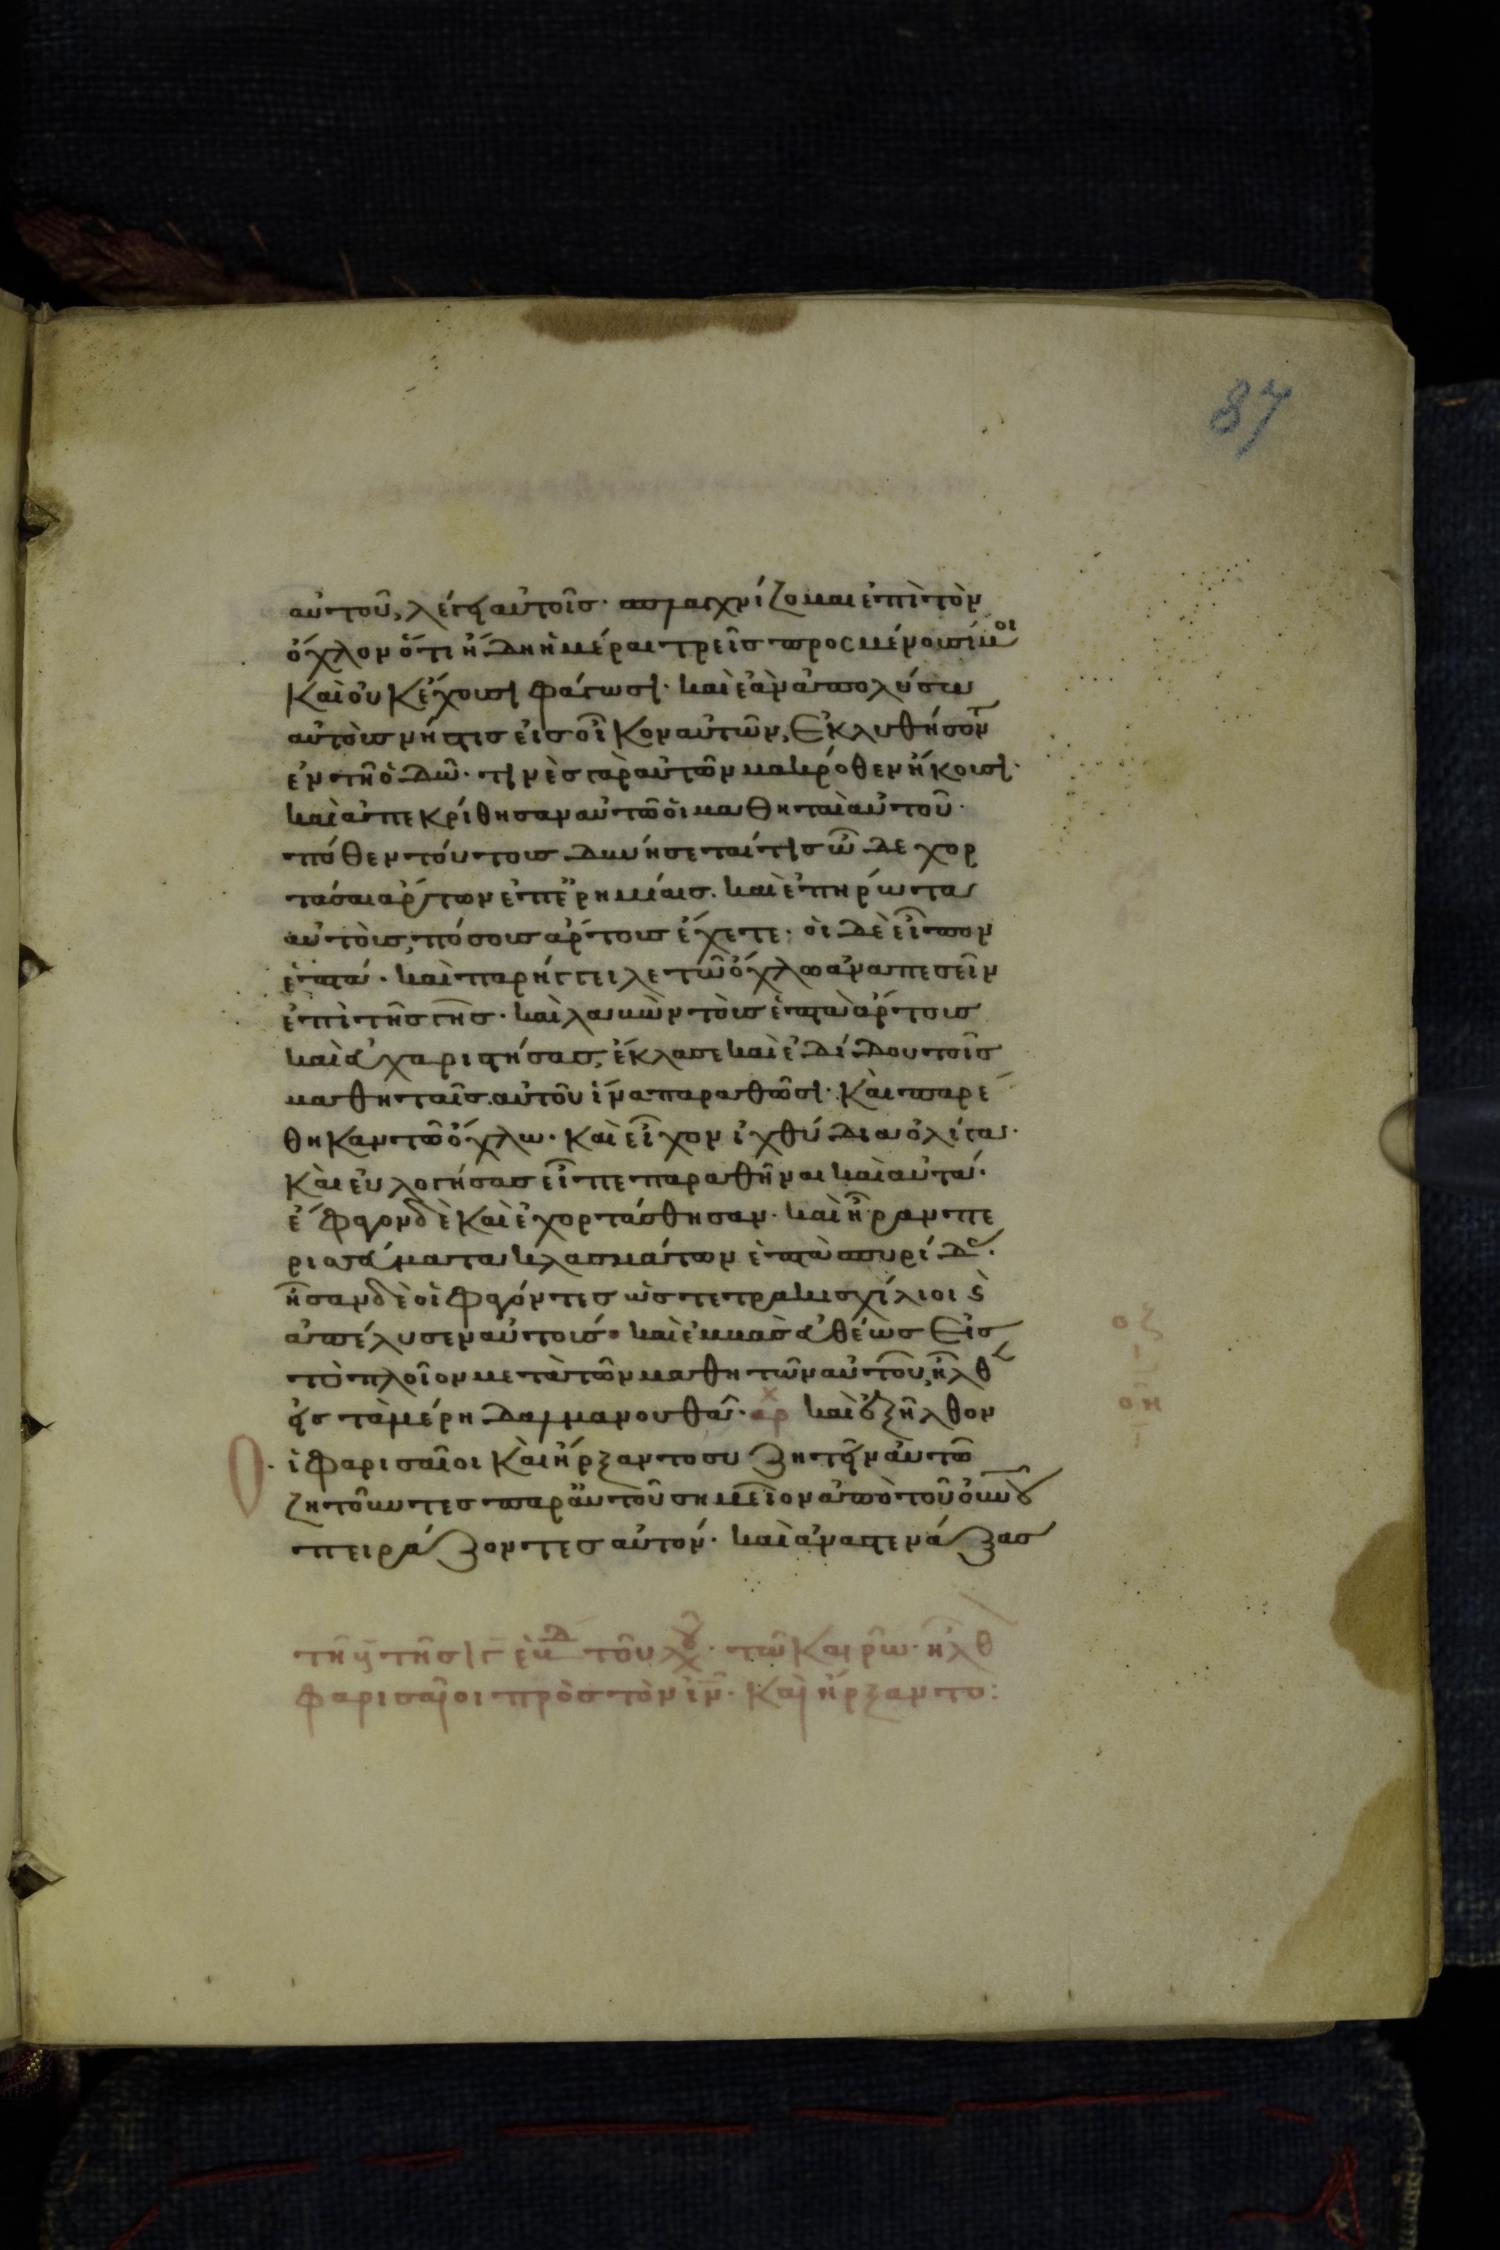 87
αὐτοῦ, λέγει αὐτοῖς· σπλαγχνίζομαι ἐπὶ τὸν
ὄχλον ὅτι ἤδη ἡμέραι τρεῖς προσμένουσί μοι
καὶ οὐκ ἔχουσι φάγωσι· καὶ ἐὰν ἀπολύσω
αὐτοὺς νήστις εἰς οἶκον αὐτῶν, ἐκλυθήσοντ
ἐν τῆ ὁδῶ· τινὲς γὰρ αὐτῶν μακρόθεν ἥκουσι·
καὶ ἀπεκρίθησαν αὐτῶ οἱ μαθηταὶ αὐτοῦ·
πόθεν τούτους δυνήσεταί τις ὧδε χορ
τάσαι ἄρτων ἐπ ἐρημίαις. καὶ ἐπηρώτα
αὐτούς, πόσους ἄρτους ἔχετε· οἱ δὲ εἶπον
ἑπτά· καὶ παρήγγειλε τῶ ὄχλω ἀναπεσεῖν
ἐπὶ τῆς γῆς· καὶ λαβὼν τοὺς ἑπτὰ ἄρτους
καὶ εὐχαριστήσας, ἔκλασε καὶ ἐδίδου τοῖς
μαθηταῖς αὐτοῦ ἵνα παραθῶσι· καὶ παρέ
θηκαν τῶ ὄχλω· καὶ εἶχον ἰχθύδια ὀλίγα·
καὶ εὐλογήσας εἶπε παραθῆναι καὶ αὐτά·
ἔφαγον δὲ καὶ ἐχορτάσθησαν· καὶ ἦραν πε
ρισσεύματα κλασμάτων ἑπτὰ σπυρίδας·
ἦσαν δὲ οἱ φαγόντες ὡς τετρακισχίλιοι ϗ
ἀπέλυσεν αὐτούς· καὶ ἐμβὰς εὐθέως εἰς
τὸ πλοῖον μετὰ τῶν μαθητῶν αὐτοῦ, ἦλθεν
εἰς τὰ μέρη δαλμανουθά· αρχ καὶ ἐξῆλθον
οἱ φαρισαῖοι καὶ ἤρξαντο συζητεῖν αὐτῶ
ζητοῦντες παρ αὐτοῦ σημεῖον ἀπὸ τοῦ οὐνου
πειράζοντες αὐτόν· καὶ ἀναστενάξας
οζ
ι
οη
ι
τῆ γ τῆς ιγ ἑβδ τοῦ χου· τῶ καιρῶ· ἦλθ
φαρισαῖοι πρὸς τὸν ιν· καὶ ἤρξαντο: